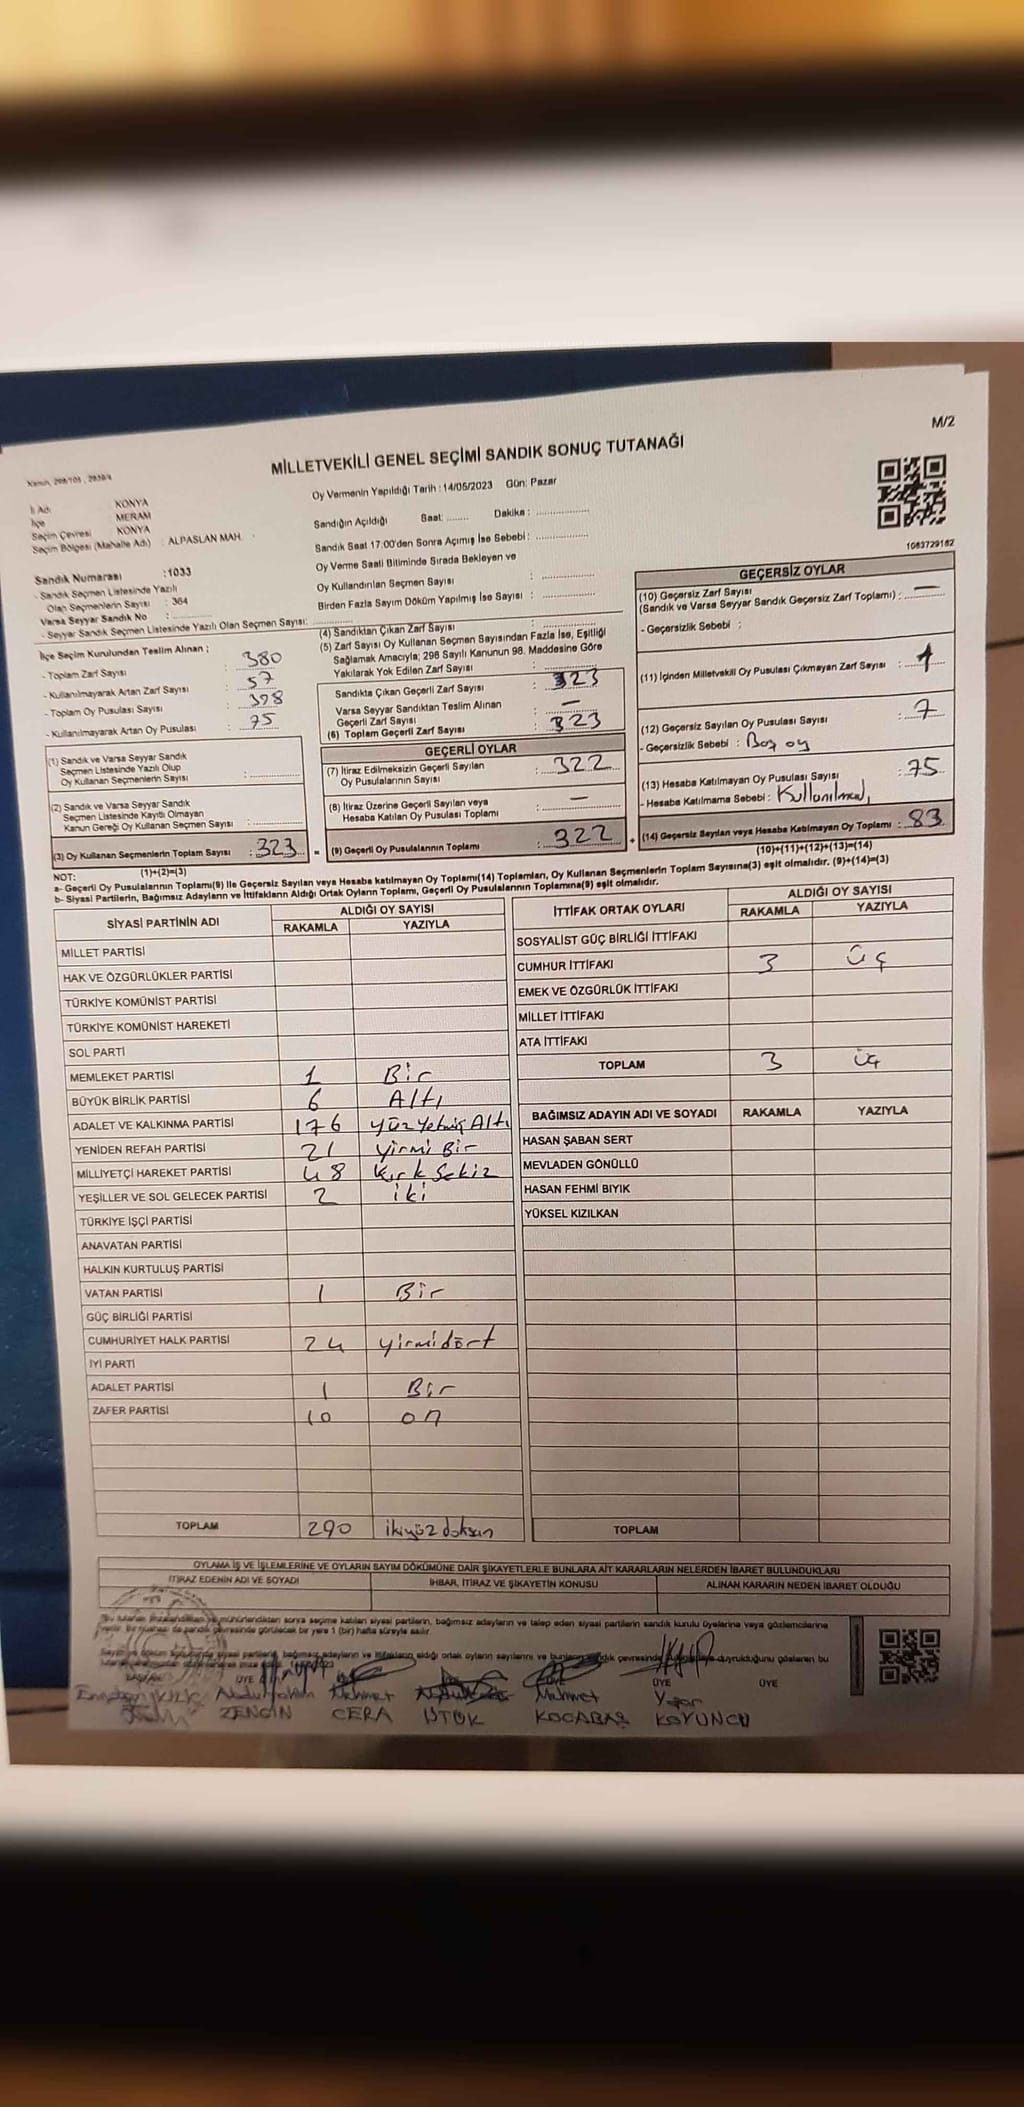 M/2
MİLLETVEKİLİ GENEL SEÇİMİ SANDIK SONUÇ TUTANAĞI
İl Adı : KONYA
İlçe : MERAM
Seçim Çevresi : KONYA
Seçim Bölgesi (Mahalle Adı) : ALPASLAN MAH.
Sandık Numarası : 1033
- Sandık Seçmen Listesinde Yazılı
Olan Seçmenlerin Sayısı : 364
Varsa Seyyar Sandık No : ............
- Seyyar Sandık Seçmen Listesinde Yazılı Olan Seçmen Sayısı: ............
Oy Vermenin Yapıldığı Tarih : 14/05/2023 Gün: Pazar
Sandığın Açıldığı Saat: ........ Dakika : ................
Sandık Saat 17:00'den Sonra Açımış İse Sebebi : ................
Oy Verme Saati Bitiminde Sırada Bekleyen ve
Oy Kullandırılan Seçmen Sayısı : ................
Birden Fazla Sayım Döküm Yapılmış İse Sayısı : ................
1063729182
İlçe Seçim Kurulundan Teslim Alınan ;
- Toplam Zarf Sayısı : 380
- Kullanılmayarak Artan Zarf Sayısı : 57
- Toplam Oy Pusulası Sayısı : 398
- Kullanılmayarak Artan Oy Pusulası : 75
(1) Sandık ve Varsa Seyyar Sandık
Seçmen Listesinde Yazılı Olup
Oy Kullanan Seçmenlerin Sayısı : ............
(2) Sandık ve Varsa Seyyar Sandık
Seçmen Listesinde Kayıtlı Olmayan
Kanun Gereği Oy Kullanan Seçmen Sayısı : ............
(3) Oy Kullanan Seçmenlerin Toplam Sayısı : 323
(1)+(2)=(3)
(4) Sandıktan Çıkan Zarf Sayısı : ............
(5) Zarf Sayısı Oy Kullanan Seçmen Sayısından Fazla İse, Eşitliği
Sağlamak Amacıyla; 298 Sayılı Kanunun 98. Maddesine Göre
Yakılarak Yok Edilen Zarf Sayısı : ............
Sandıkta Çıkan Geçerli Zarf Sayısı : 323
Varsa Seyyar Sandıktan Teslim Alınan
Geçerli Zarf Sayısı : —
(6) Toplam Geçerli Zarf Sayısı : 323
GEÇERLİ OYLAR
(7) İtiraz Edilmeksizin Geçerli Sayılan
Oy Pusulalarının Sayısı : 322
(8) İtiraz Üzerine Geçerli Sayılan veya
Hesaba Katılan Oy Pusulası Toplamı : —
(9) Geçerli Oy Pusulalarının Toplamı : 322
GEÇERSİZ OYLAR
(10) Geçersiz Zarf Sayısı
(Sandık ve Varsa Seyyar Sandık Geçersiz Zarf Toplamı) : —
- Geçersizlik Sebebi :
(11) İçinden Milletvekili Oy Pusulası Çıkmayan Zarf Sayısı : 1
(12) Geçersiz Sayılan Oy Pusulası Sayısı : 7
- Geçersizlik Sebebi : Boş oy
(13) Hesaba Katılmayan Oy Pusulası Sayısı : 75
- Hesaba Katılmama Sebebi :
(14) Geçersiz Sayılan veya Hesaba Katılmayan Oy Toplamı : 83
(10)+(11)+(12)+(13)=(14)
NOT:
a- Geçerli Oy Pusulalarının Toplamı(9) ile Geçersiz Sayılan veya Hesaba katılmayan Oy Toplamı(14) Toplamları, Oy Kullanan Seçmenlerin Toplam Sayısına(3) eşit olmalıdır. (9)+(14)=(3)
b- Siyasi Partilerin, Bağımsız Adayların ve İttifakların Aldığı Ortak Oyların Toplamı, Geçerli Oy Pusulalarının Toplamına(9) eşit olmalıdır.
SİYASİ PARTİNİN ADI ALDIĞI OY SAYISI
RAKAMLA YAZIYLA
MİLLET PARTİSİ
HAK VE ÖZGÜRLÜKLER PARTİSİ
TÜRKİYE KOMÜNİST PARTİSİ
TÜRKİYE KOMÜNİST HAREKETİ
SOL PARTİ
MEMLEKET PARTİSİ 1 Bir
BÜYÜK BİRLİK PARTİSİ 6 Altı
ADALET VE KALKINMA PARTİSİ 176 yüzyetmiş Altı
YENİDEN REFAH PARTİSİ 21 yirmi Bir
MİLLİYETÇİ HAREKET PARTİSİ 48 Kırk Sekiz
YEŞİLLER VE SOL GELECEK PARTİSİ 2 iki
TÜRKİYE İŞÇİ PARTİSİ
ANAVATAN PARTİSİ
HALKIN KURTULUŞ PARTİSİ
VATAN PARTİSİ 1 Bir
GÜÇ BİRLİĞİ PARTİSİ
CUMHURİYET HALK PARTİSİ 24 yirmidört
İYİ PARTİ
ADALET PARTİSİ 1 Bir
ZAFER PARTİSİ 10 on
TOPLAM 290 ikiyüz doksan
İTTİFAK ORTAK OYLARI ALDIĞI OY SAYISI
RAKAMLA YAZIYLA
SOSYALİST GÜÇ BİRLİĞİ İTTİFAKI
CUMHUR İTTİFAKI 3 üç
EMEK VE ÖZGÜRLÜK İTTİFAKI
MİLLET İTTİFAKI
ATA İTTİFAKI
TOPLAM 3 üç
BAĞIMSIZ ADAYIN ADI VE SOYADI RAKAMLA YAZIYLA
HASAN ŞABAN SERT
MEVLADEN GÖNÜLLÜ
HASAN FEHMİ BIYIK
YÜKSEL KIZILKAN
TOPLAM
OYLAMA İŞ VE İŞLEMLERİNE VE OYLARIN SAYIM DÖKÜMÜNE DAİR ŞİKAYETLERLE BUNLARA AİT KARARLARIN NELERDEN İBARET BULUNDUKLARI
İTİRAZ EDENİN ADI VE SOYADI İHBAR, İTİRAZ VE ŞİKAYETİN KONUSU ALINAN KARARIN NEDEN İBARET OLDUĞU
sonra seçime katılan siyasi partilerin, bağımsız adayların ve talep eden siyasi partilerin sandık kurulu üyelerine veya gözlemcilerine
çevresinde görülecek bir yere 1 (bir) hafta süreyle asılır.
ÜYE ÜYE ÜYE
ZENGİN Mehmet CERA Mehmet KOCABAŞ Yaşar KOYUNCU